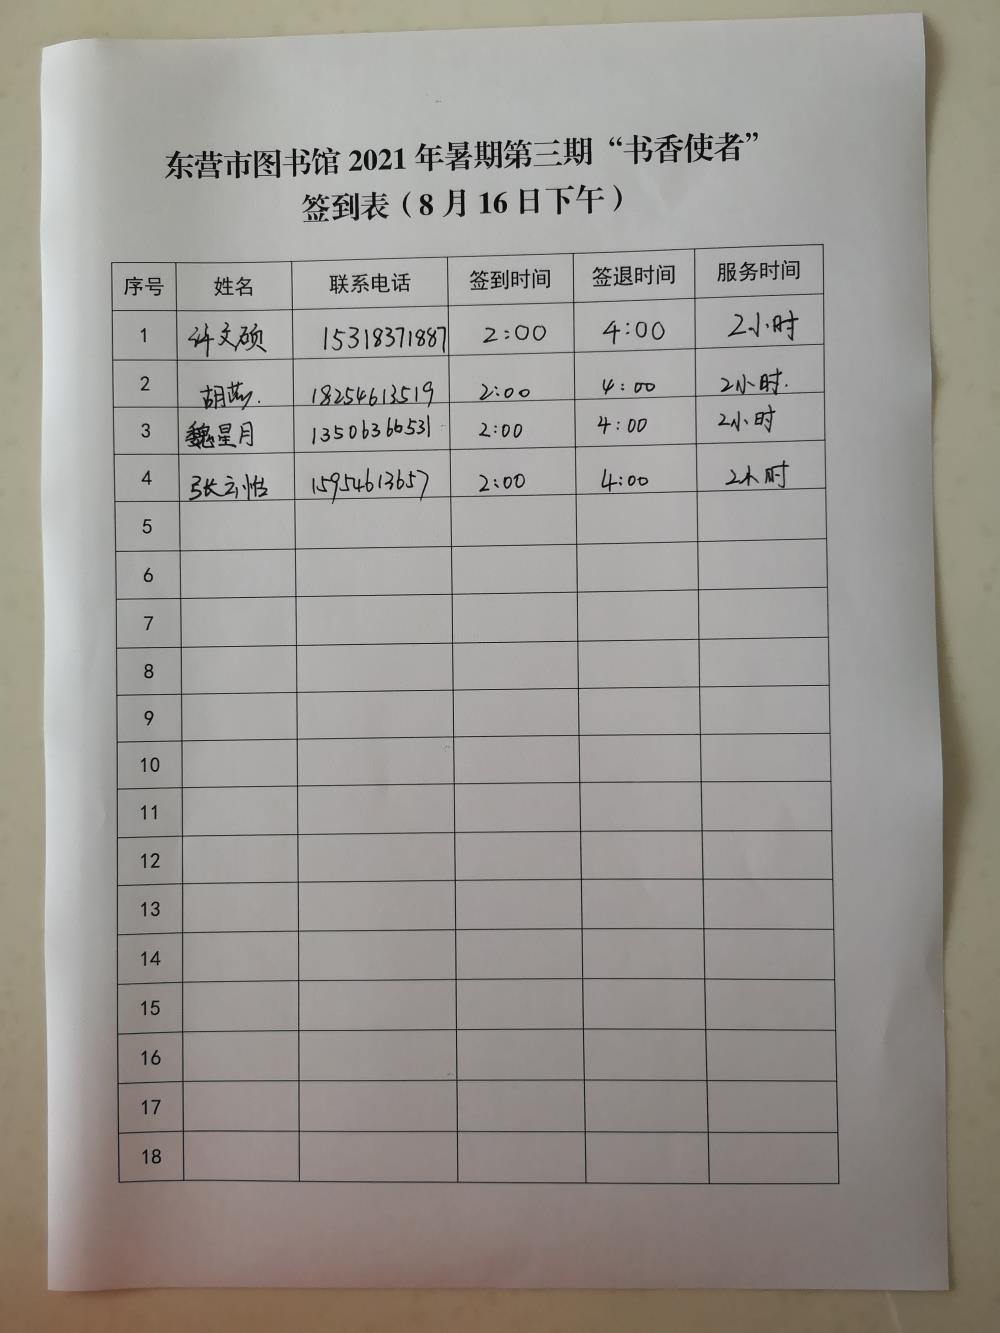 东营市图书馆 2021 年暑期第三期 “书香使者”
签到表（8 月 16 日下午）
序号 姓名 联系电话 签到时间 签退时间 服务时间
1 许文硕 15318371887 2:00 4:00 2小时
2 胡燕. 18254613519 2:00 4:00 2小时.
3 魏星月 13506366531 2:00 4:00 2小时
4 张云怡 15954613657 2:00 4:00 2小时
5
6
7
8
9
10
11
12
13
14
15
16
17
18